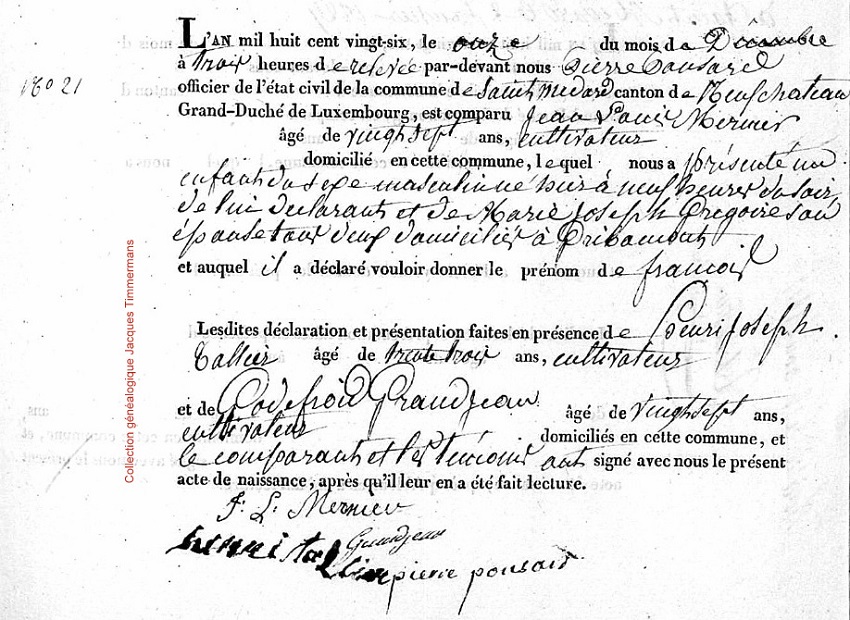 L'AN mil huit cent vingt-six, le onze du mois de Décembre
à trois heures de relevée par-devant nous Pierre Ponsard
officier de l'état civil de la commune de Saint Médard canton de Neufchateau
Grand-Duché de Luxembourg, est comparu Jean Louis Mernier
âgé de vingt sept ans, cultivateur
domicilié en cette commune, lequel nous a présenté un
enfant du sexe masculin né hier à neuf heures du soir,
de lui déclarant et de Marie Joseph Gregoire son
épouse tous deux domiciliés à Gribomont
et auquel il a déclaré vouloir donner le prénom de francois
Lesdites déclaration et présentation faites en présence de Henri Joseph
Tallier âgé de trente trois ans, cultivateur
et de Godefroid Grandjean âgé de vingt sept ans,
cultivateur domiciliés en cette commune, et
le comparant et les temoins ont signé avec nous le présent
acte de naissance, après qu'il leur en a été fait lecture.
J. L. Mernier
Grandjean
pierre ponsard
N° 21
Collection généalogique Jacques Timmermans